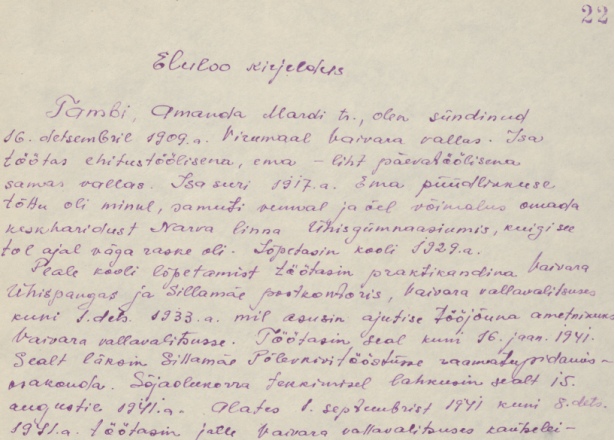 22
Eluloo kirjeldus
Tambi, Amanda Mardi tr., olen sündinud
16. detsembril 1909.a. Virumaal Vaivara vallas. Isa
töötas ehitustöölisena, ema – liht päevatöölisena
samas vallas. Isa suri 1917.a. Ema püüdlikkuse
tõttu oli minul, samuti vennal ja õel võimalus omada
keskharidust Narva linna Ühisgümnaasiumis, kuigi see
tol ajal väga raske oli. Lõpetasin kooli 1929.a.
Peale kooli lõpetamist töötasin praktikandina Vaivara
Ühispangas ja Sillamäe postkontoris, Vaivara vallavalitsuses
kuni 1. dets. 1933.a. mil asusin ajutise tööjõuna ametnikuks
Vaivara vallavalitsusse. Töötasin seal kuni 16. jaan. 1941.
Sealt läksin Sillamäe Põlevkivitööstusse raamatupidamis-
osakonda. Sõjaolukorra tekkimisel lahkusin sealt 15.
augustil 1941.a. Alates 1. septembrist 1941 kuni 8. dets.
1951.a. töötasin jälle Vaivara vallavalitsuses